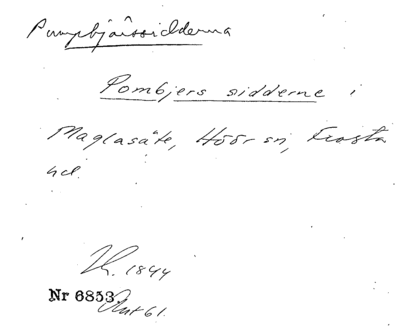 Pumpbjärssidderna
Pombjers sidderne i
Maglasäte, Höör sn, Frosta
hd.
1844
Nr 6853.